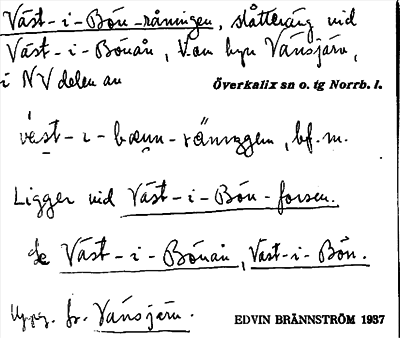 Väst-i-Bön-råningen, slåtteräng vid
Väst-i-Bönån, V.om byn Vänsjärv,
i NV delen av
Överkalix sn o. tg Norrb. l.
vest-i-bœnn-råningen, bf. m.
Ligger vid Väst-i-Bön-forsen.
Se Väst-i-Bönån, Väst-i-Bön.
Uppg. fr. Vänsjärv.
EDVIN BRÄNNSTRÖM 1937